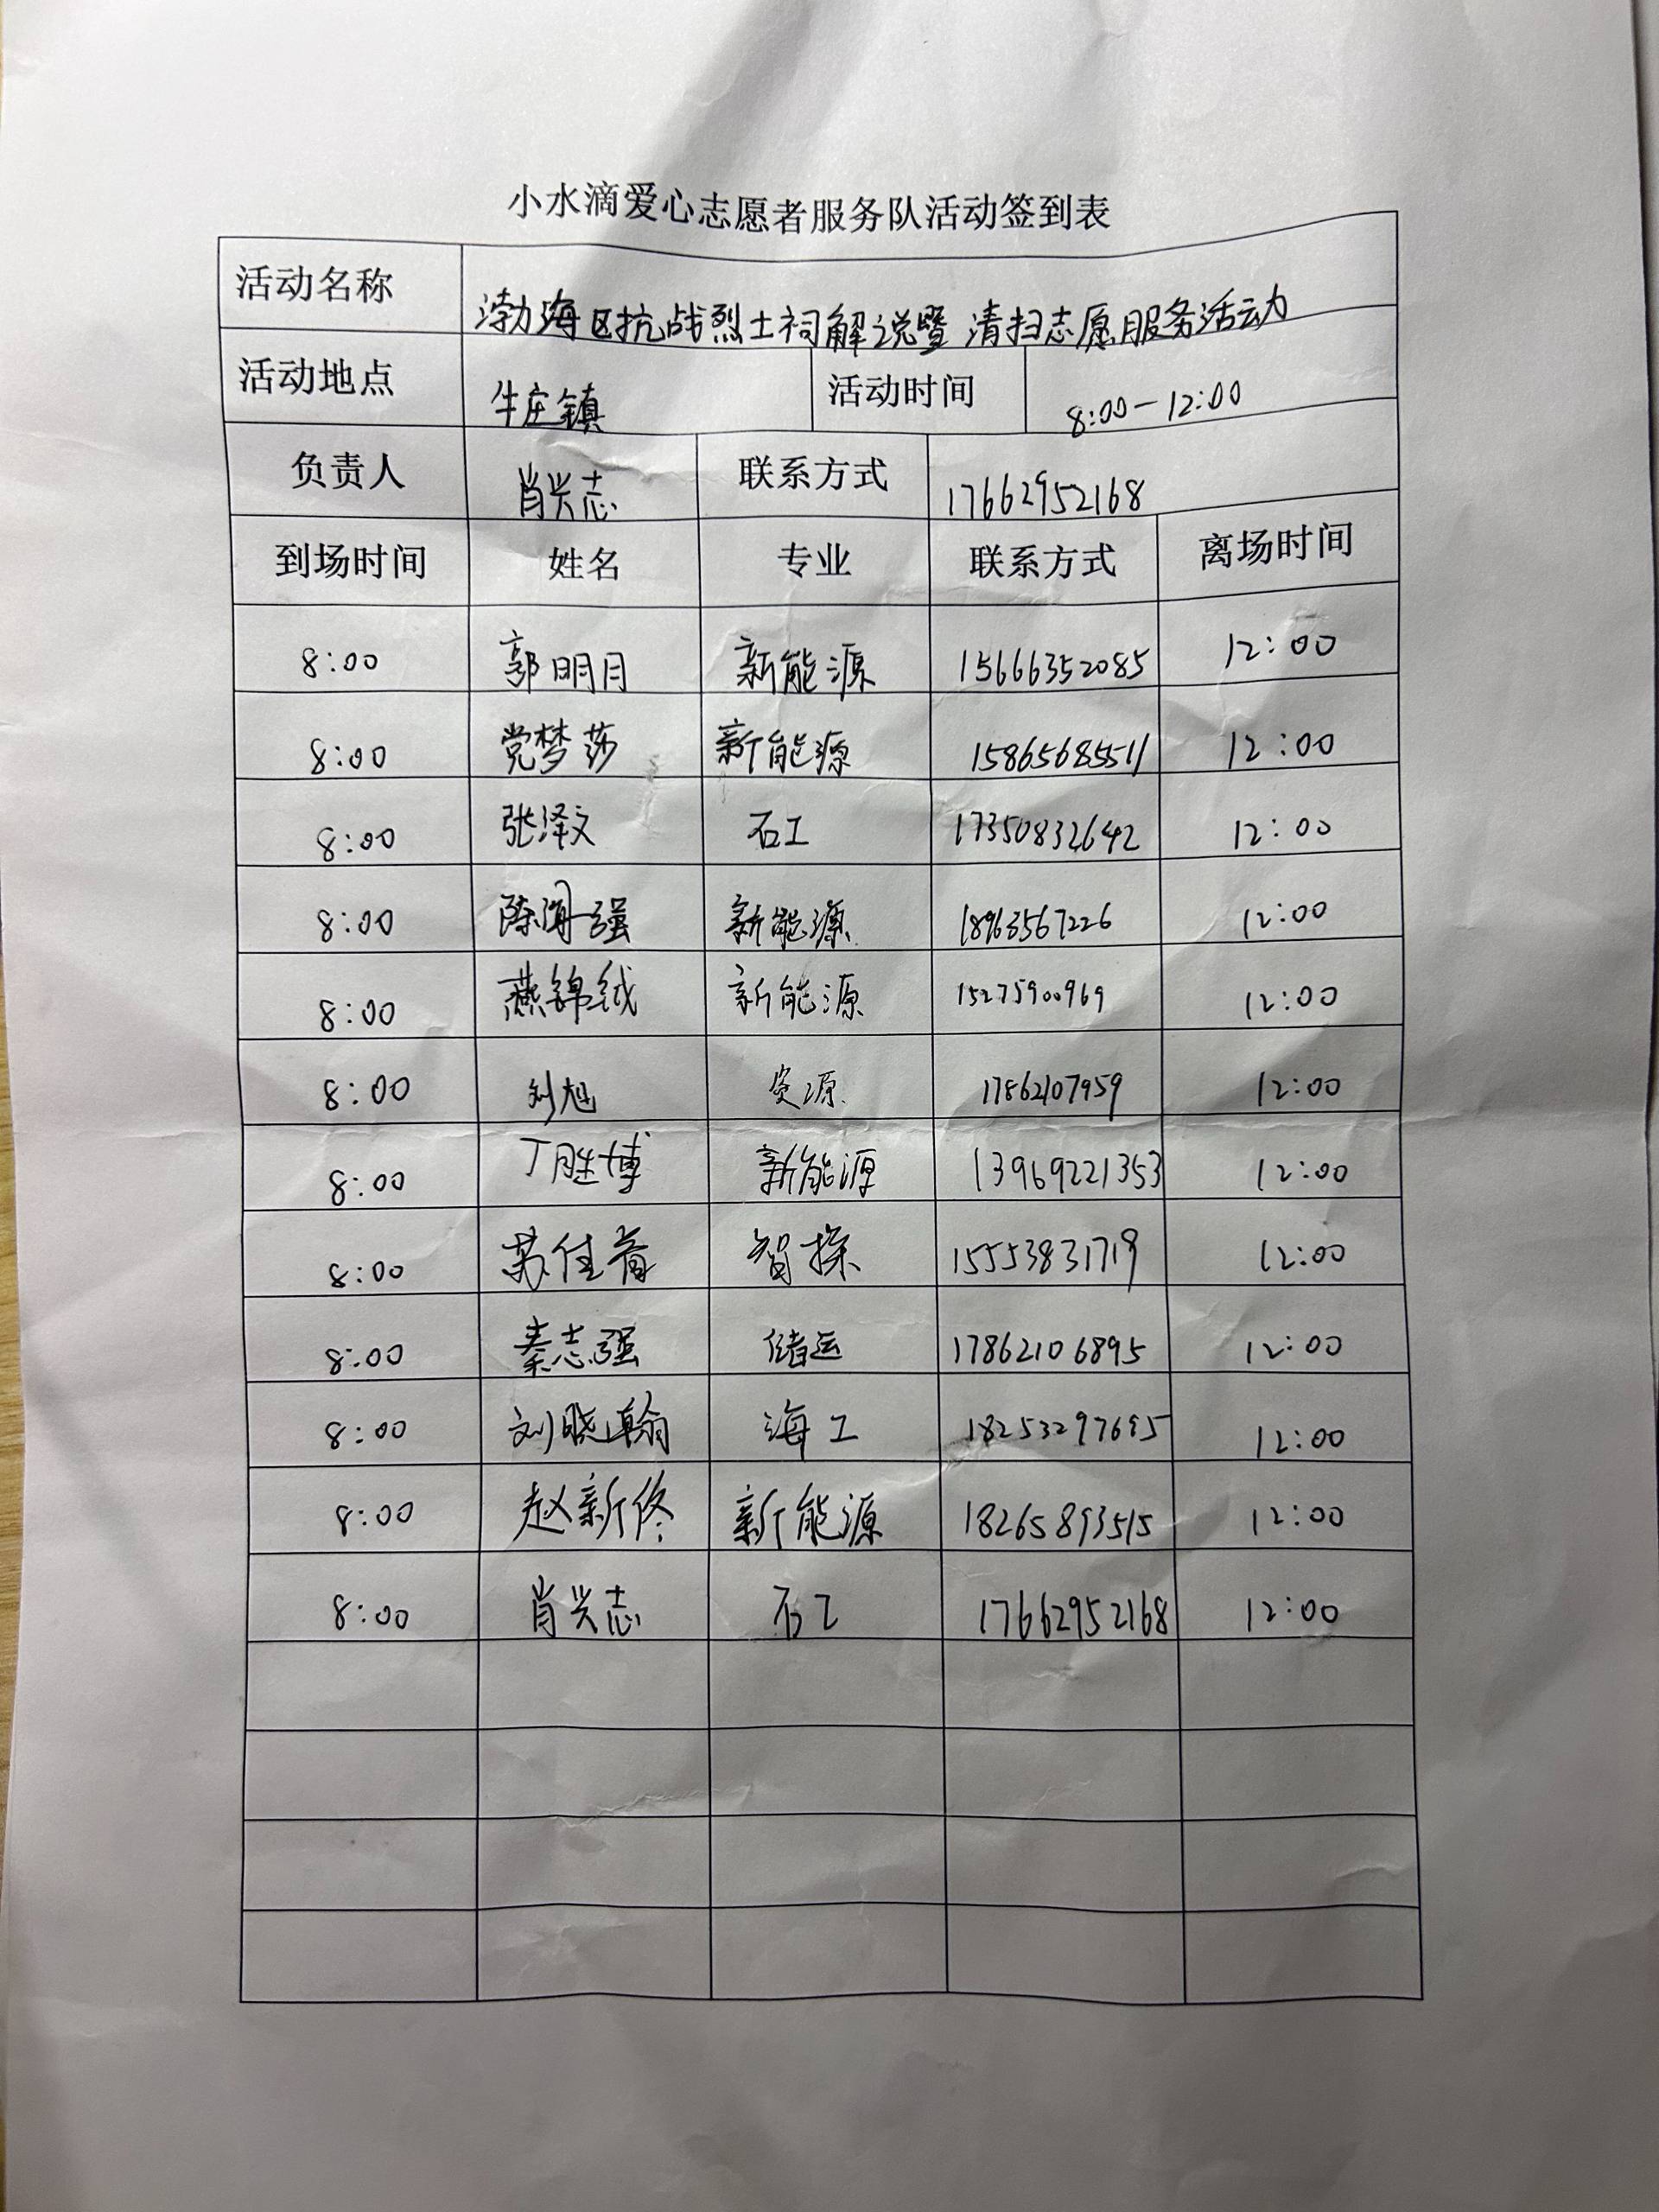 小水滴爱心志愿者服务队活动签到表
活动名称 渤海区抗战烈士祠解说暨清扫志愿服务活动
活动地点 牛庄镇 活动时间 8:00-12:00
负责人 肖兴志 联系方式 17662952168
到场时间 姓名 专业 联系方式 离场时间
8:00 郭明月 新能源 15666352085 12:00
8:00 党梦莎 新能源 15865685511 12:00
8:00 张泽文 石工 17350832642 12:00
8:00 陈海强 新能源 18963567226 12:00
8:00 燕锦钺 新能源 15275900969 12:00
8:00 刘旭 资源 17862107959 12:00
8:00 丁胜博 新能源 13969221353 12:00
8:00 苏佳 智探 15553831719 12:00
8:00 秦志强 储运 17862106895 12:00
8:00 刘晓翰 海工 18253297695 12:00
8:00 赵新佟 新能源 18265893515 12:00
8:00 肖兴志 石工 17662952168 12:00